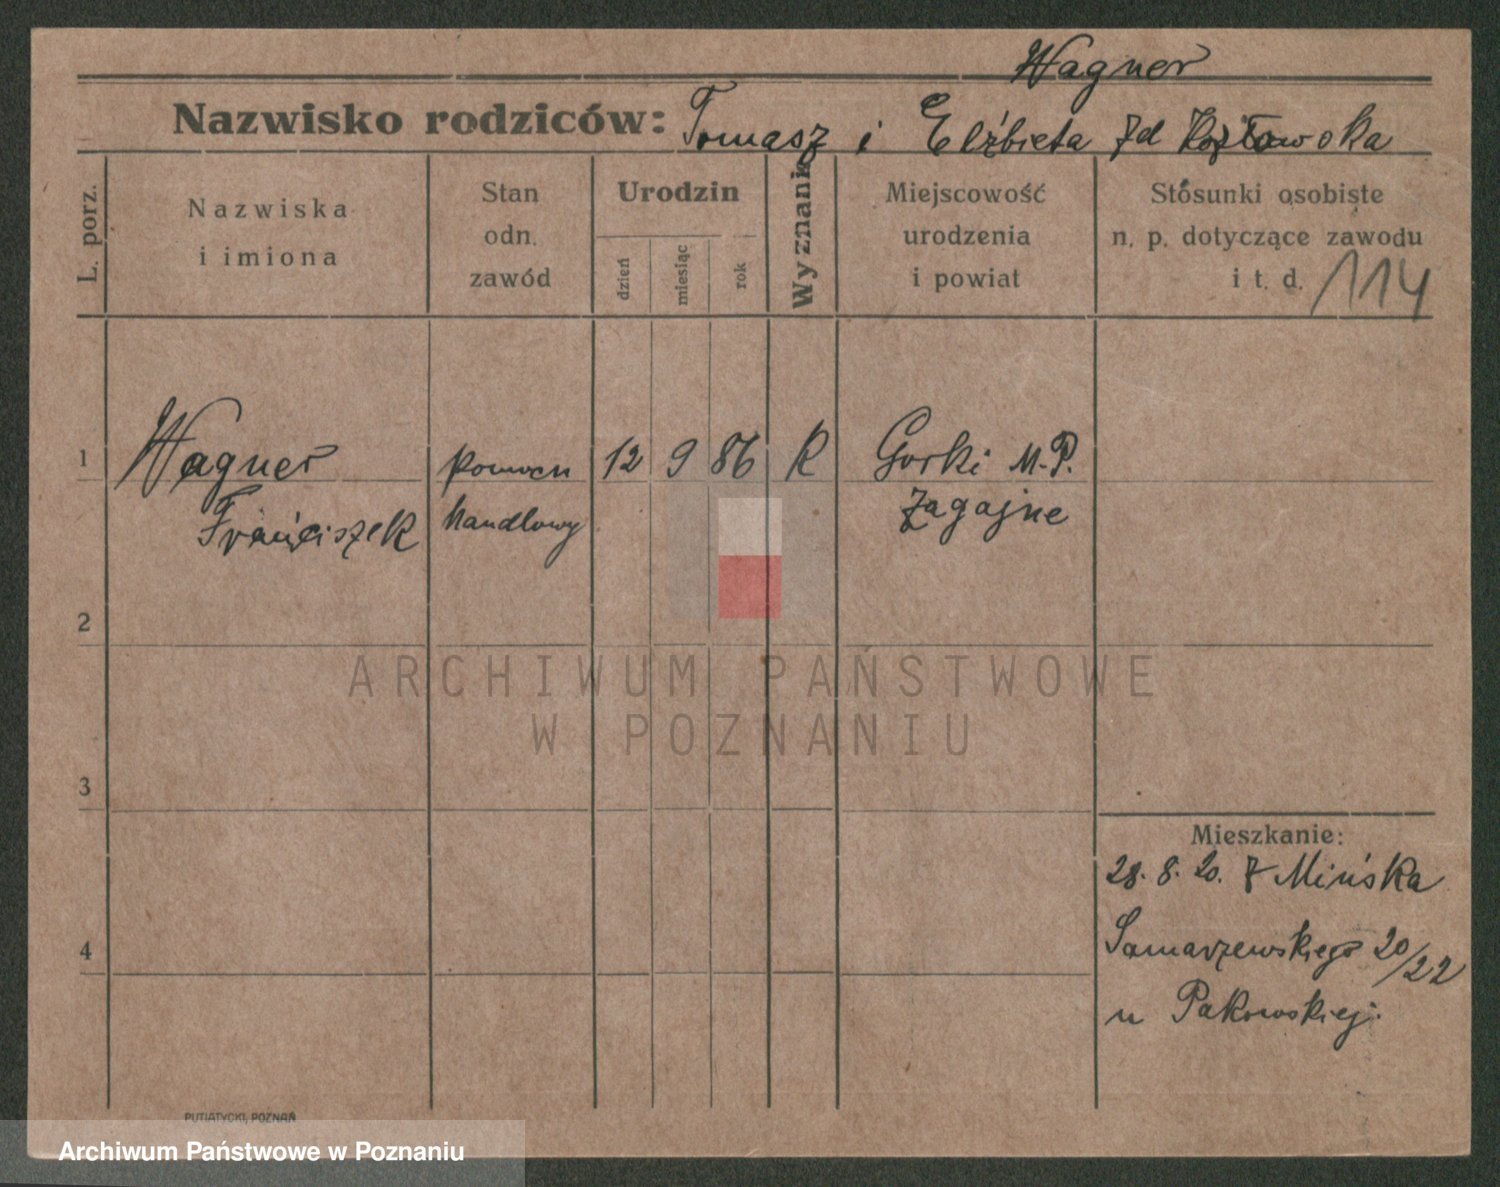 Wagner
Nazwisko rodziców: Tomasz i Elżbieta zd Kozłowska
L. porz.
Nazwiska
i imiona
Stan
odn.
zawód
Urodzin
dzień
miesiąc
rok
Wyznanie
Miejscowość
urodzenia
i powiat
Stosunki osobiste
n. p. dotyczące zawodu
i t. d. 114
1 Wagner pomocn 12 9 86 R Gorki M.P.
Franciszek handlowy Zagajne
2
ARCHIWUM PAŃSTWOWE
W POZNANIU
3
Mieszkanie:
28. 8. 20. z Mińska
4 Samarzewskiego 20/22
u Pakowskiej.
PUTIATYCKI, POZNAŃ
Archiwum Państwowe w Poznaniu